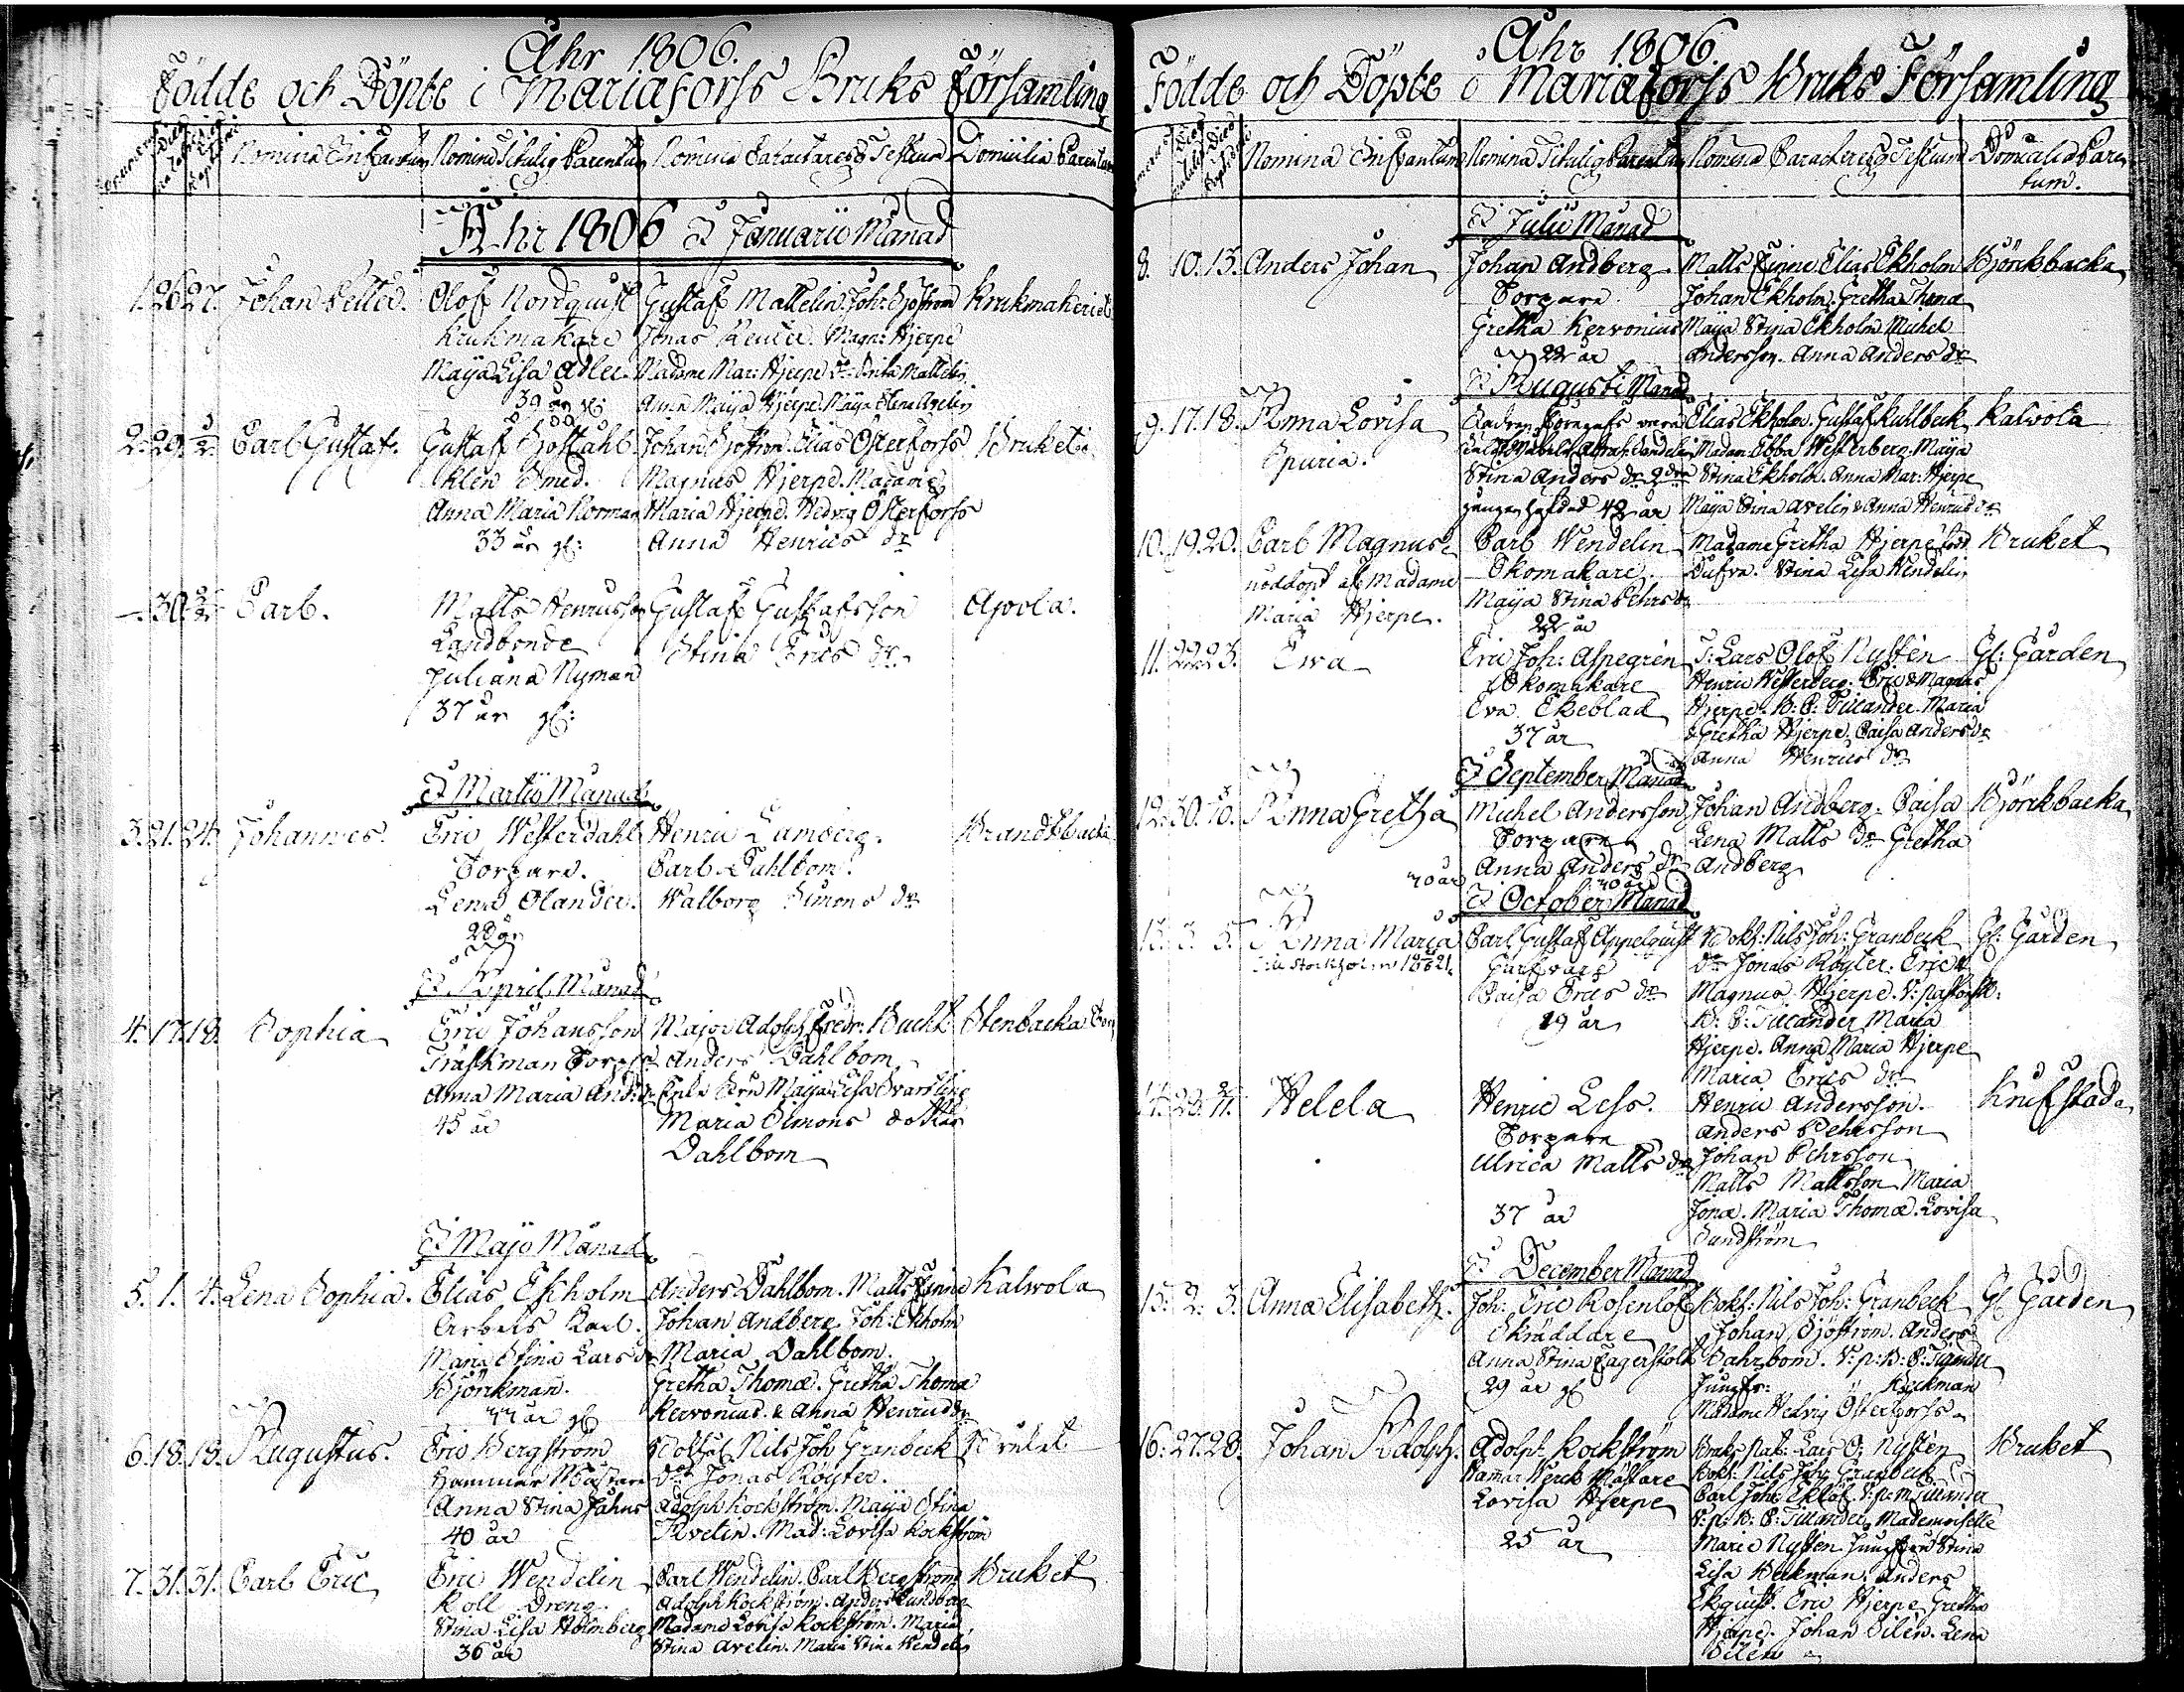 Åhr 1806.
Födde och Döpte i Mariaforss Bruks Församling
Nomina Infantum Nomina Titulig Parentum Nomina Caracteresq Testium Domicilia Parentum
Åhr 1806 I Januarii Månad
1. 26. 27. Johan Petter. Olof Nordquist Gustaf Mattelin. Joh: Sjöström Krukmakeriet
Krukmakare Jonas Reuter. Magn: Hjerpe
Maija Lisa Adler. Madame Mar: Hjerpe Mattelin
39 år gl: Anna Maija Hjerpe. Maija Stina Avelin
2. 29. Carl Gustaf. Gustaf Sjöstahl Johan Sjöström. Elias Österforss Bruket
Klen Smed. Magnus Hjerpe. Madame
Anna Maria Norman Maria Hjerpe. Hedvig Österforss
33 år gl: Anna Henrics dr
30. Carl. Matts Henricsson Gustaf Gustafsson Ajvola.
Landbonde Stina Erics dr
Juliana Nyman
37 år gl:
I Martii Månad
3. 21. 24. Johannes. Eric Westerdahl Henric Lumberg. Brandtbacka
Torpare. Carl Dahlbom.
Lena Olander. Walborg Simons dr
28 år
I April Månad
4. 17. 18. Sophia Eric Johansson Major Adolph Fredr: Bucht Stenbacka Torp
Träskman Torpare Anders Dahlbom
Anna Maria And: dr Enk: Maija Lisa Svartling
45 år Maria Simons dotter
Dahlbom
I Maji Månad
5. 1. 4. Lena Sophia. Elias Ekholm Anders Dahlbom. Matts Finne Kalvola
Arbets Karl. Johan Andberg. Joh: Ekholm
Maria Stina Lars dr Maria Dahlbom.
Björkman. Gretha Thomæ. Gretha Thomæ
44 år gl Kervonius. & Anna Henrics dr
6. 18. 18. Augustus. Eric Bergström Bokhål Nils Joh Granbeck Bruket
Hammar Mästare Do Jonas Röyter.
Anna Stina Jahns Adolph Kockström. Maija Stina
40 år Avelin. Mad: Lovisa Kockström
7. 31. 31. Carl Eric Eric Wendelin Carl Wendelin. Carl Bergström Bruket
Koll Dreng. Adolph Kockström. Anders Lundbom
Stina Lisa Holmberg Madame Lovisa Kockström. Maria
36 år Stina Avelin. Maria Stina Wendelin
Åhr 1806.
Födde och Döpte i Mariaforss Bruks Församling
Nomina Infantum Nomina Titulig Parentum Nomina Caracteresq Testium Domicilia Paren
tum.
I Julii Månad
8. 10. 13. Anders Johan Johan Andberg. Matts Finne Elias Ekholm Björkbacka
Torpare. Johan Ekholm. Gretha Thomæ
Gretha Kervonius Maija Stina Ekholm Michel
22 år Andersson. Anna Anders dr
I Augusti Månad
9. 17. 18. Anna Lovisa Elias Ekholm. Gustaf Kuhlbeck Kalvola
Spuria. Wendelin Madam Ebba Westerberg. Maija
Stina Anders dr 2dra Stina Ekholm. Anna Mar: Hjerpe
gången 42 år Maija Stina Avelin & Anna Henrics dr
10. 19. 20. Carl Magnus Carl Wendelin Madame Gretha Hjerpe född Bruket
nöddöpt af Madame Skomakare Dufva. Stina Lisa Wendelin
Maria Hjerpe. Maija Stina Pehrs dr
22 år
11. 22. 23. Ewa Eric Joh: Aspegren Lars Olof Nystén Gl: Gården
Skomakare Henric Westerberg. Eric & Magnus
Eva Ekeblad Hjerpe. B: P: Ticcander. Maria
37 år & Gretha Hjerpe. Caisa Anders dr
Anna Henrics dr
I September Månad
12. 30. Anna Gretha Michel Andersson Johan Andberg. Caisa Björkbacka
Torpare Lena Matts dr Gretha
Anna Anders dr Andberg
40 år
I October Månad
13. 3. 5. Anna Maria Carl Gustaf Appelquist Bokh: Nils Joh: Granbeck Gl: Gården
Till Stockholm Garfvare Do Jonas Röyter. Eric &
Caisa Erics dr Magnus Hjerpe.
29 år B: P: Ticcander Maria
Hjerpe. Anna Maria Hjerpe
Maria Erics dr
14. 28. Helela Henric Less. Henric Andersson. Knifstad
Torpare Anders Pehrsson
Ulrica Matts dr Johan Pehrsson
Matts Mattsson Maria
37 år Jonæ. Maria Thomæ. Lovisa
Sundström
I December Månad
15. 2. 3. Anna Elisabeth. Joh: Eric Rosenlöf Bokh: Nils Joh: Granbeck Gl Gården
Skräddare Johan Sjöström. Anders
Anna Stina Fagerstolt Dahlbom.
29 år gl Jungfr: Beckman
Madame Hedvig Österforss
16. 27. 28. Johan Adolph. Adolph Kockström Bruks Pat: Lars O: Nystén Bruket
Hammar Werck Mästare Bokh: Nils Joh: Granbeck
Lovisa Hjerpe Carl Joh: Ekelöf. V: p: M: Ticcander
25 år V: p: B: P: Ticcander. Mademoiselle
Maria Nystén. Jungfru Stina
Lisa Beckman. Anders
Ekquist. Eric Hjerpe. Gretha
Hjerpe. Johan Silén. Lena
Silén